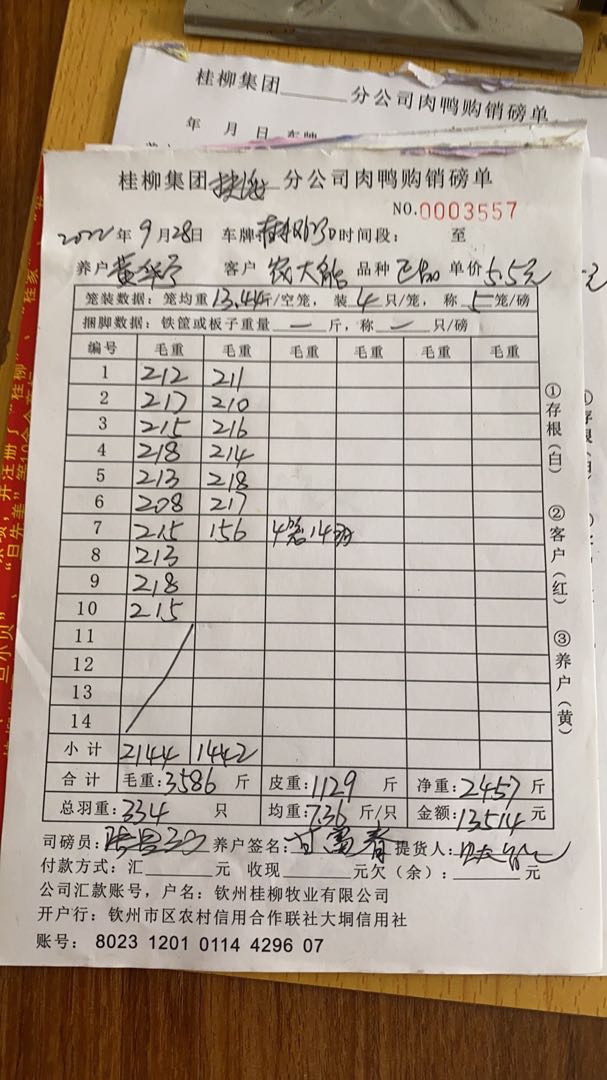 桂柳集团 分公司肉鸭购销磅单
年 月 日 车牌
桂柳集团 分公司肉鸭购销磅单
NO.0003557
2022年9月28日 车牌 时间段： 至
养户 客户 农大 品种 单价5.5元
笼装数据：笼均重13.44斤/空笼，装4只/笼，称5笼/磅
捆脚数据：铁筐或板子重量—斤，称—只/磅
编号 毛重 毛重 毛重 毛重 毛重 毛重
1 212 211
2 217 210
3 215 216
4 218 214
5 213 218
6 208 217
7 215 156 4笼14羽
8 213
9 218
10 215
11
12
13
14
小计 2144 1442
合计 毛重：3586斤 皮重：1129斤 净重：2457斤
总羽重：334只 均重：7.36斤/只 金额：13514元
司磅员： 养户签名： 提货人：
付款方式：汇 元 收现 元欠（余）： 元
公司汇款账号，户名：钦州桂柳牧业有限公司
开户行：钦州市区农村信用合作联社大垌信用社
账号：8023 1201 0114 4296 07
①存根（白） ②客户（红） ③养户（黄）